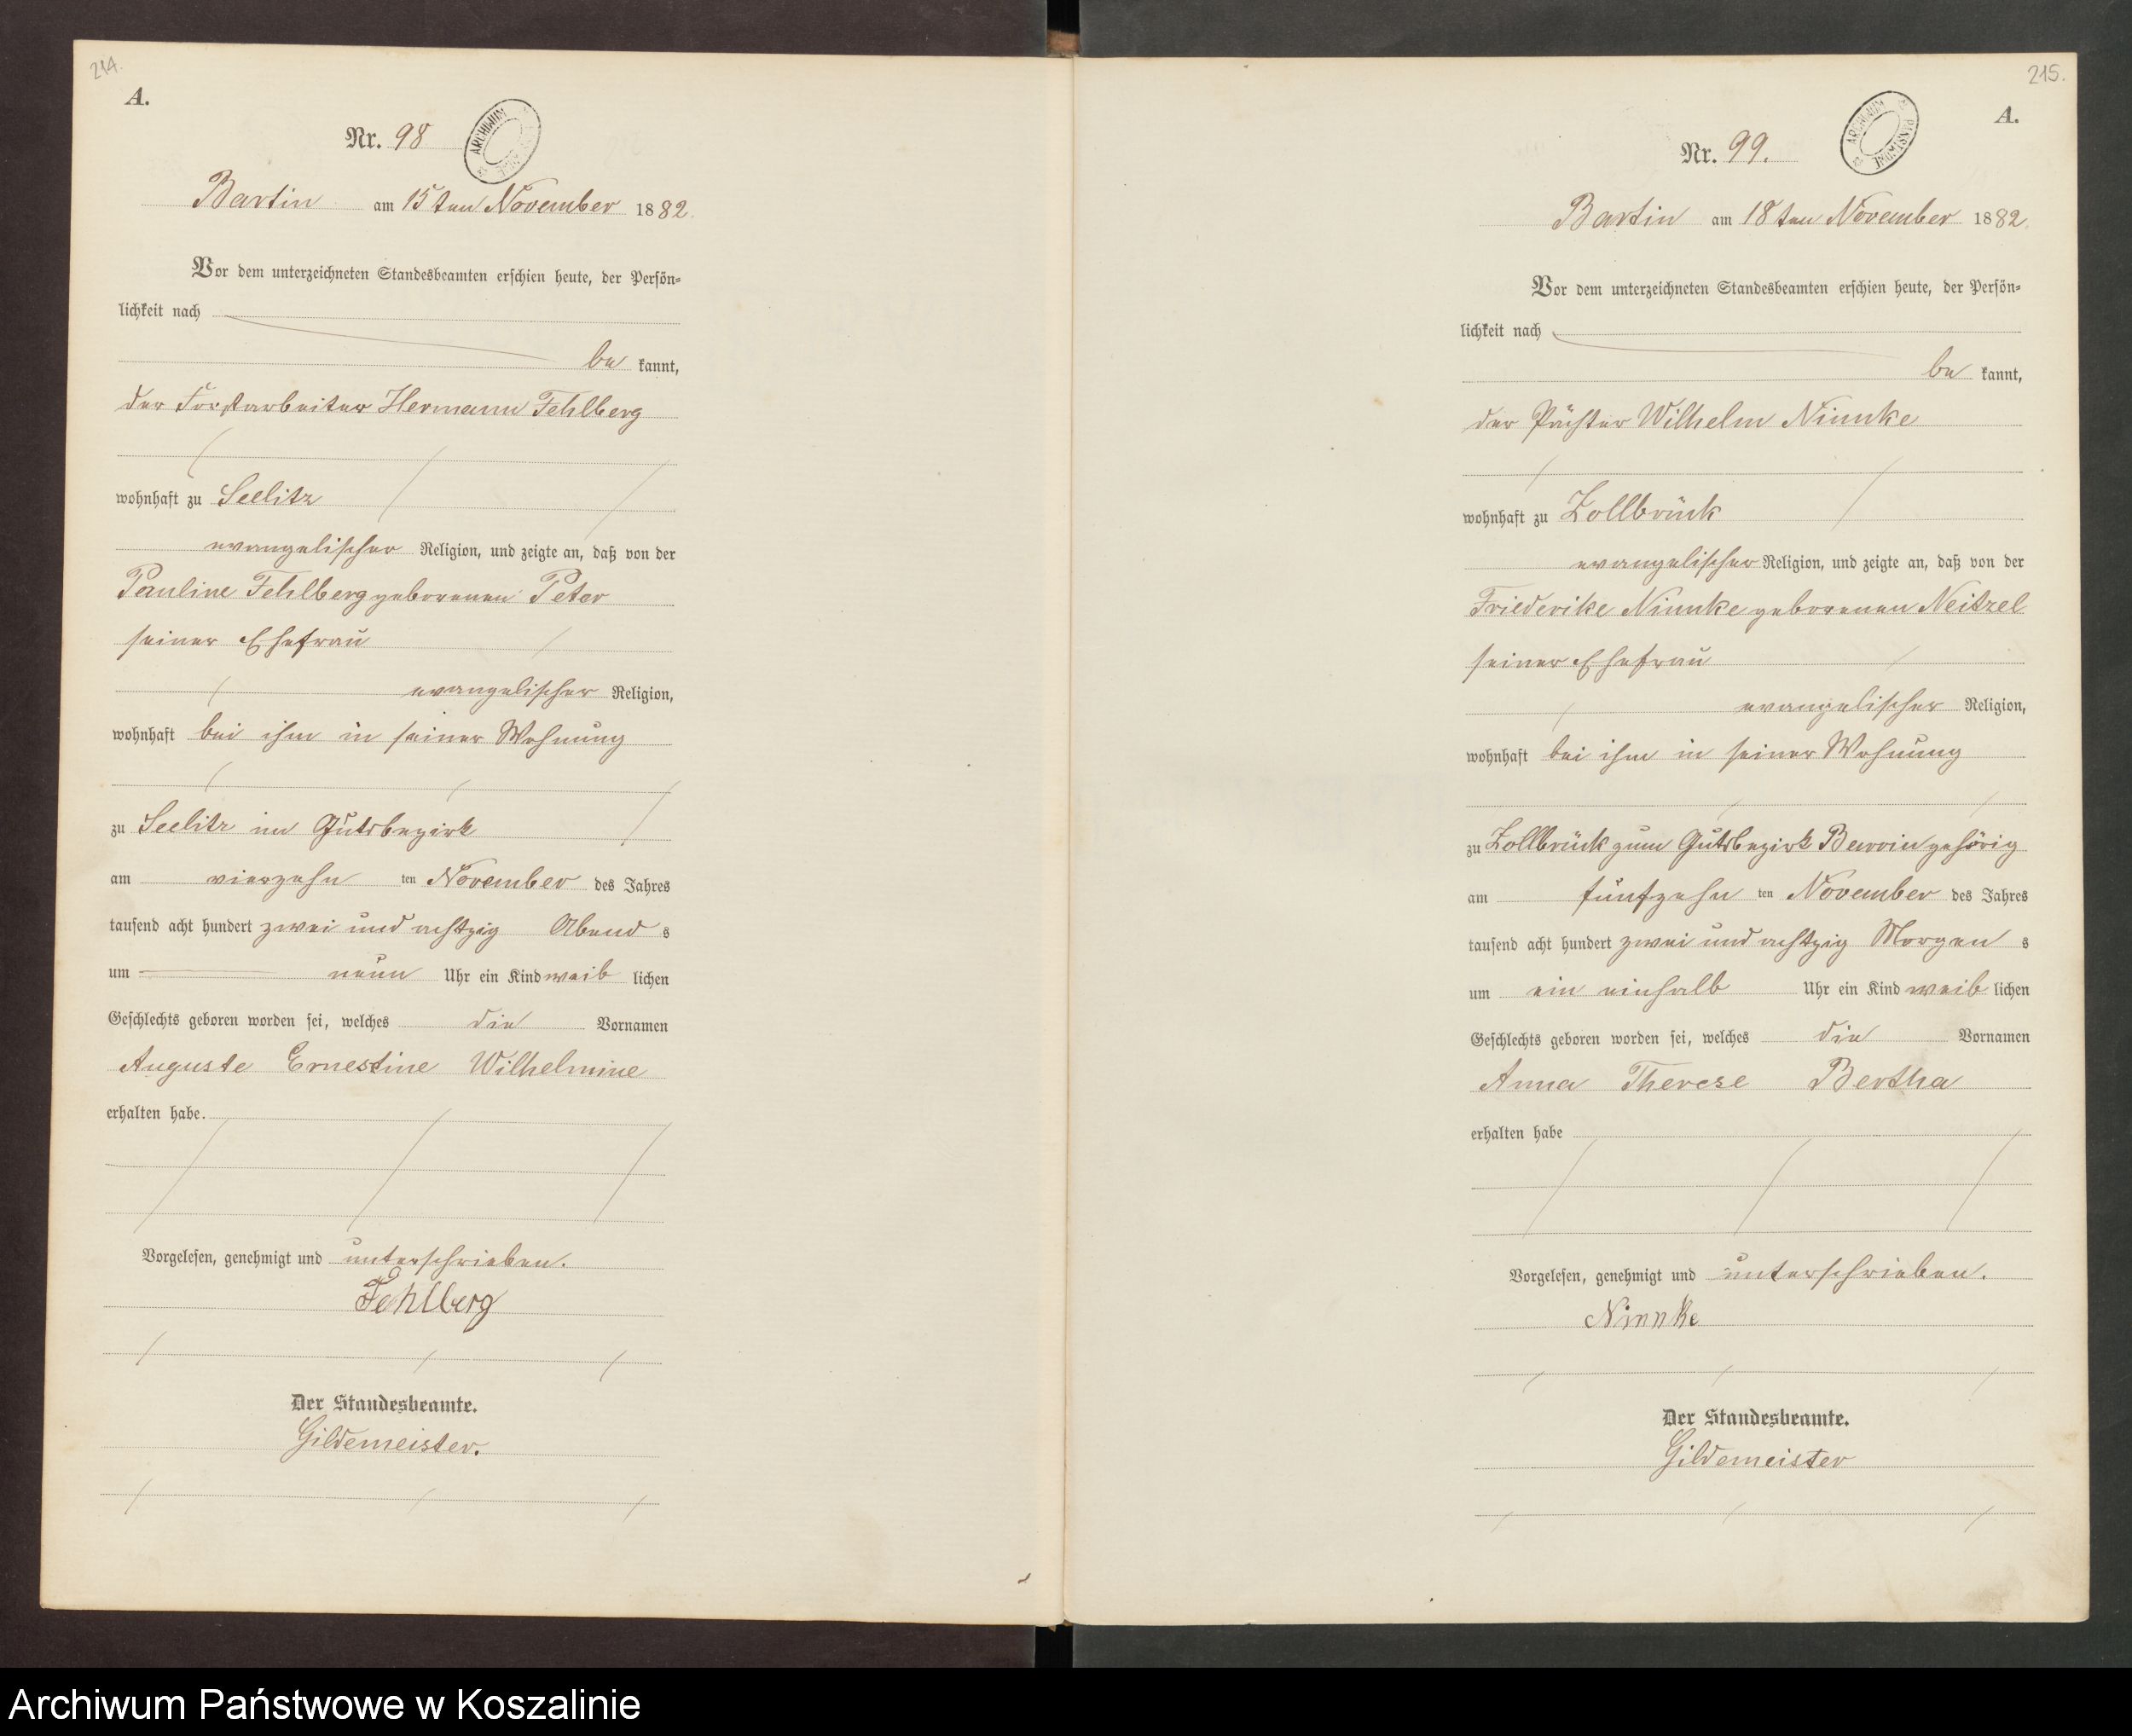 214.
A.
Nr. 98
ARCHIWUM
Bartin am 15ten November 1882.
Vor dem unterzeichneten Standesbeamten erschien heute, der Persön-
lichkeit nach
be kannt,
der Forstarbeiter Hermann Fehlberg
wohnhaft zu Seelitz
evangelischer Religion, und zeigte an, daß von der
Pauline Fehlberg geborenen Peter
seiner Ehefrau
evangelischer Religion,
wohnhaft bei ihm in seiner Wohnung
zu Seelitz im Gutsbezirk
am vierzehn ten November des Jahres
tausend acht hundert zwei und achtzig Abend s
um neun Uhr ein Kind weib lichen
Geschlechts geboren worden sei, welches die Vornamen
Auguste Ernestine Wilhelmine
erhalten habe.
Vorgelesen, genehmigt und unterschrieben.
Fehlberg
Der Standesbeamte.
Gildemeister.
215.
A.
Nr. 99.
ARCHIWUM
Bartin am 18ten November 1882.
Vor dem unterzeichneten Standesbeamten erschien heute, der Persön-
lichkeit nach
be kannt,
der Pächter Wilhelm Ninnke
wohnhaft zu Zollbrück
evangelischer Religion, und zeigte an, daß von der
Friederike Ninnke geborenen Neitzel
seiner Ehefrau
evangelischer Religion,
wohnhaft bei ihm in seiner Wohnung
zu Zollbrück zum Gutsbezirk gehörig
am fünfzehn ten November des Jahres
tausend acht hundert zwei und achtzig Morgen s
um ein einhalb Uhr ein Kind weib lichen
Geschlechts geboren worden sei, welches die Vornamen
Anna Therese Bertha
erhalten habe
Vorgelesen, genehmigt und unterschrieben.
Ninnke
Der Standesbeamte.
Gildemeister
Archiwum Państwowe w Koszalinie